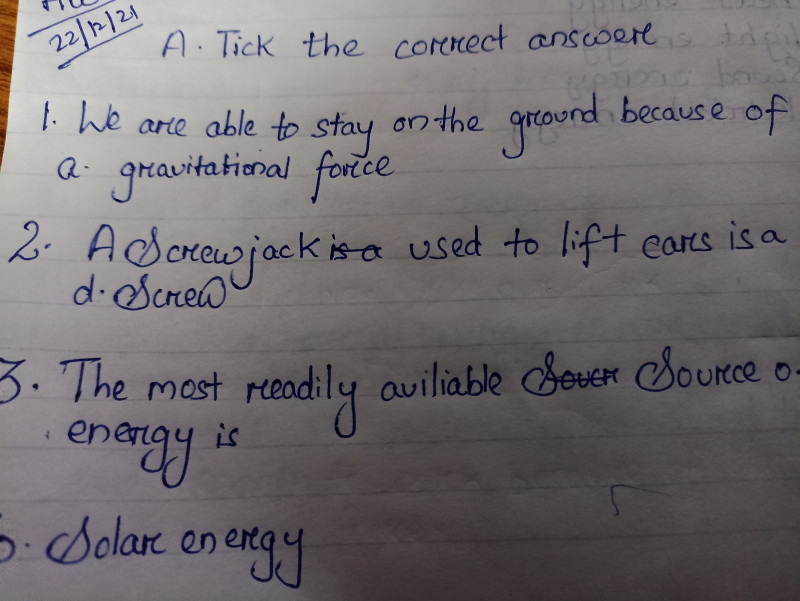 22/12/21
A. Tick the correct answere
1. We are able to stay on the ground because of
a. gravitational force
2. A Screw jack is a used to lift cars is a
d. Screw
3. The most readily auiliable Sourr Source o
energy is
b. Solar energy